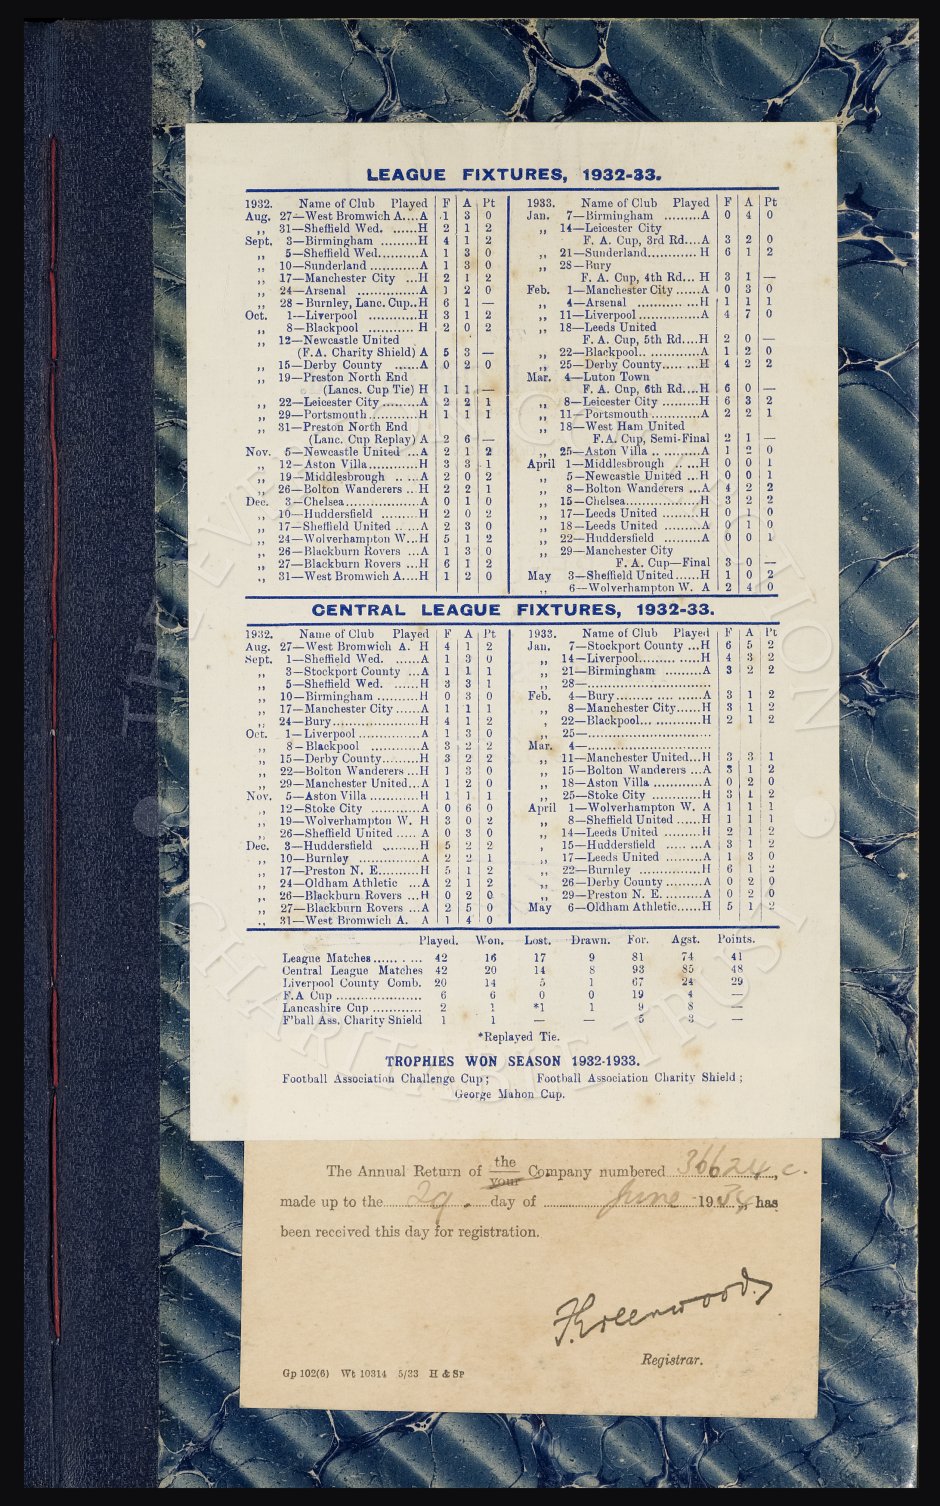 LEAGUE FIXTURES, 1932-33.
1932. Name of Club Played F A Pt
Aug. 27—West Bromwich A....A 1 3 0
,, 31—Sheffield Wed. ......H 2 1 2
Sept. 3—Birmingham .........H 4 1 2
,, 5—Sheffield Wed..........A 1 3 0
,, 10—Sunderland ............A 1 3 0
,, 17—Manchester City ...H 2 1 2
,, 24—Arsenal ...............A 1 2 0
,, 28–Burnley, Lanc. Cup..H 6 1 —
Oct. 1—Liverpool ............H 3 1 2
,, 8—Blackpool ........... H 2 0 2
,, 12—Newcastle United
(F.A. Charity Shield) A 5 3 —
,, 15—Derby County ......A 0 2 0
,, 19—Preston North End
(Lancs. Cup Tie) H 1 1 —
,, 22—Leicester City .........A 2 2 1
,, 29—Portsmouth............H 1 1 1
,, 31—Preston North End
(Lanc. Cup Replay) A 2 6 —
Nov. 5—Newcastle United ...A 2 1 2
,, 12–Aston Villa............H 3 3 1
,, 19—Middlesbrough .. ...A 2 0 2
,, 26—Bolton Wanderers .. H 2 2 1
Dec. 3—Chelsea..................A 0 1 0
,, 10—Huddersfield .........H 2 0 2
,, 17—Sheffield United .. ...A 2 3 0
,, 24—Wolverhampton W...H 5 1 2
,, 26—Blackburn Rovers ...A 1 3 0
,, 27—Blackburn Rovers ...H 6 1 2
,, 31—West Bromwich A....H 1 2 0
1933. Name of Club Played F A Pt
Jan. 7—Birmingham .........A 0 4 0
,, 14—Leicester City
F. A. Cup, 3rd Rd....A 3 2 0
,, 21—Sunderland............ H 6 1 2
,, 28–Bury
F. A. Cup, 4th Rd... H 3 1 —
Feb. 1—Manchester City .....A 0 3 0
,, 4—Arsenal ........... ...H 1 1 1
,, 11—Liverpool...............A 4 7 0
,, 18—Leeds United
F. A. Cup, 5th Rd....H 2 0 —
,, 22—Blackpool.. ............A 1 2 0
,, 25—Derby County..... ...H 4 2 2
Mar. 4—Luton Town
F. A. Cup, 6th Rd....H 6 0 —
,, 8—Leicester City .........H 6 3 2
,, 11—Portsmouth............A 2 2 1
,, 18—West Ham United
F.A. Cup, Semi-Final 2 1 —
,, 25—Aston Villa .. .........A 1 2 0
April 1—Middlesbrough .. ...H 0 0 1
,, 5—Newcastle United ...H 0 0 1
,, 8—Bolton Wanderers ...A 4 2 2
,, 15—Chelsea..................H 3 2 2
,, 17—Leeds United .........H 0 1 0
,, 18—Leeds United .........A 0 1 0
,, 22—Huddersfield .........A 0 0 1
,, 29—Manchester City
F. A. Cup—Final 3 0 —
May 3—Sheffield United......H 1 0 2
,, 6—Wolverhampton W. A 2 4 0
CENTRAL LEAGUE FIXTURES, 1932-33.
1932. Name of Club Played F A Pt
Aug. 27—West Bromwich A. H 4 1 2
Sept. 1—Sheffield Wed. ......A 1 3 0
,, 3—Stockport County ...A 1 1 1
,, 5—Sheffield Wed. ......H 3 3 1
,, 10—Birmingham ..........H 0 3 0
,, 17—Manchester City ......A 1 1 1
,, 24—Bury.....................H 4 1 2
Oct. 1—Liverpool ...............A 1 3 0
,, 8–Blackpool ............A 3 2 2
,, 15—Derby County.........H 3 2 2
,, 22—Bolton Wanderers ...H 1 3 0
,, 29—Manchester United...A 1 2 0
Nov. 5—Aston Villa ............H 1 1 1
,, 12—Stoke City ............A 0 6 0
,, 19—Wolverhampton W. H 3 0 2
,, 26—Sheffield United ..... A 0 3 0
Dec. 3—Huddersfield .........H 5 2 2
,, 10—Burnley ...............A 2 2 1
,, 17—Preston N. E..........H 5 1 2
,, 24—Oldham Athletic ...A 2 1 2
,, 26—Blackburn Rovers ...H 0 2 0
,, 27—Blackburn Rovers ...A 2 5 0
,, 31—West Bromwich A. A 1 4 0
1933. Name of Club Played F A Pt
Jan. 7—Stockport County ...H 6 5 2
,, 14—Liverpool......... .....H 4 3 2
,, 21—Birmingham .........A 3 2 2
,, 28—..............................
Feb. 4—Bury......... ... ......A 3 1 2
,, 8—Manchester City......H 3 1 2
, 22—Blackpool... ...........H 2 1 2
,, 25—..............................
Mar. 4—..............................
,, 11—Manchester United...H 3 3 1
,, 15—Bolton Wanderers ...A 3 1 2
,, 18—Aston Villa ............A 0 2 0
,, 25—Stoke City ............H 3 1 2
April 1—Wolverhampton W. A 1 1 1
,, 8—Sheffield United ......H 1 1 1
,, 14—Leeds United .........H 2 1 2
, 15—Huddersfield ..... ...A 3 1 2
,, 17—Leeds United .........A 1 3 0
,, 22—Burnley ...............H 6 1 2
,, 26—Derby County .........A 0 2 0
,, 29—Preston N. E. .........A 0 2 0
May 6—Oldham Athletic......H 5 1 2
Played. Won. Lost. Drawn. For. Agst. Points.
League Matches...... . ... 42 16 17 9 81 74 41
Central League Matches 42 20 14 8 93 85 48
Liverpool County Comb. 20 14 5 1 67 24 29
F.A Cup ...................... 6 6 0 0 19 4 —
Lancashire Cup ............ 2 1 *1 1 9 8 —
F'ball Ass. Charity Shield 1 1 — — 5 3 —
*Replayed Tie.
TROPHIES WON SEASON 1932-1933.
Football Association Challenge Cup; Football Association Charity Shield;
George Mahon Cup.
The Annual Return of the your Company numbered 36624 c.
made up to the 29. day of June 1934, has
been received this day for registration.
F. Greenwood.
Registrar.
Gp 102(6) Wt 10314 5/33 H & SP
THE EVERTON COLLECTION
CHARITABLE TRUST